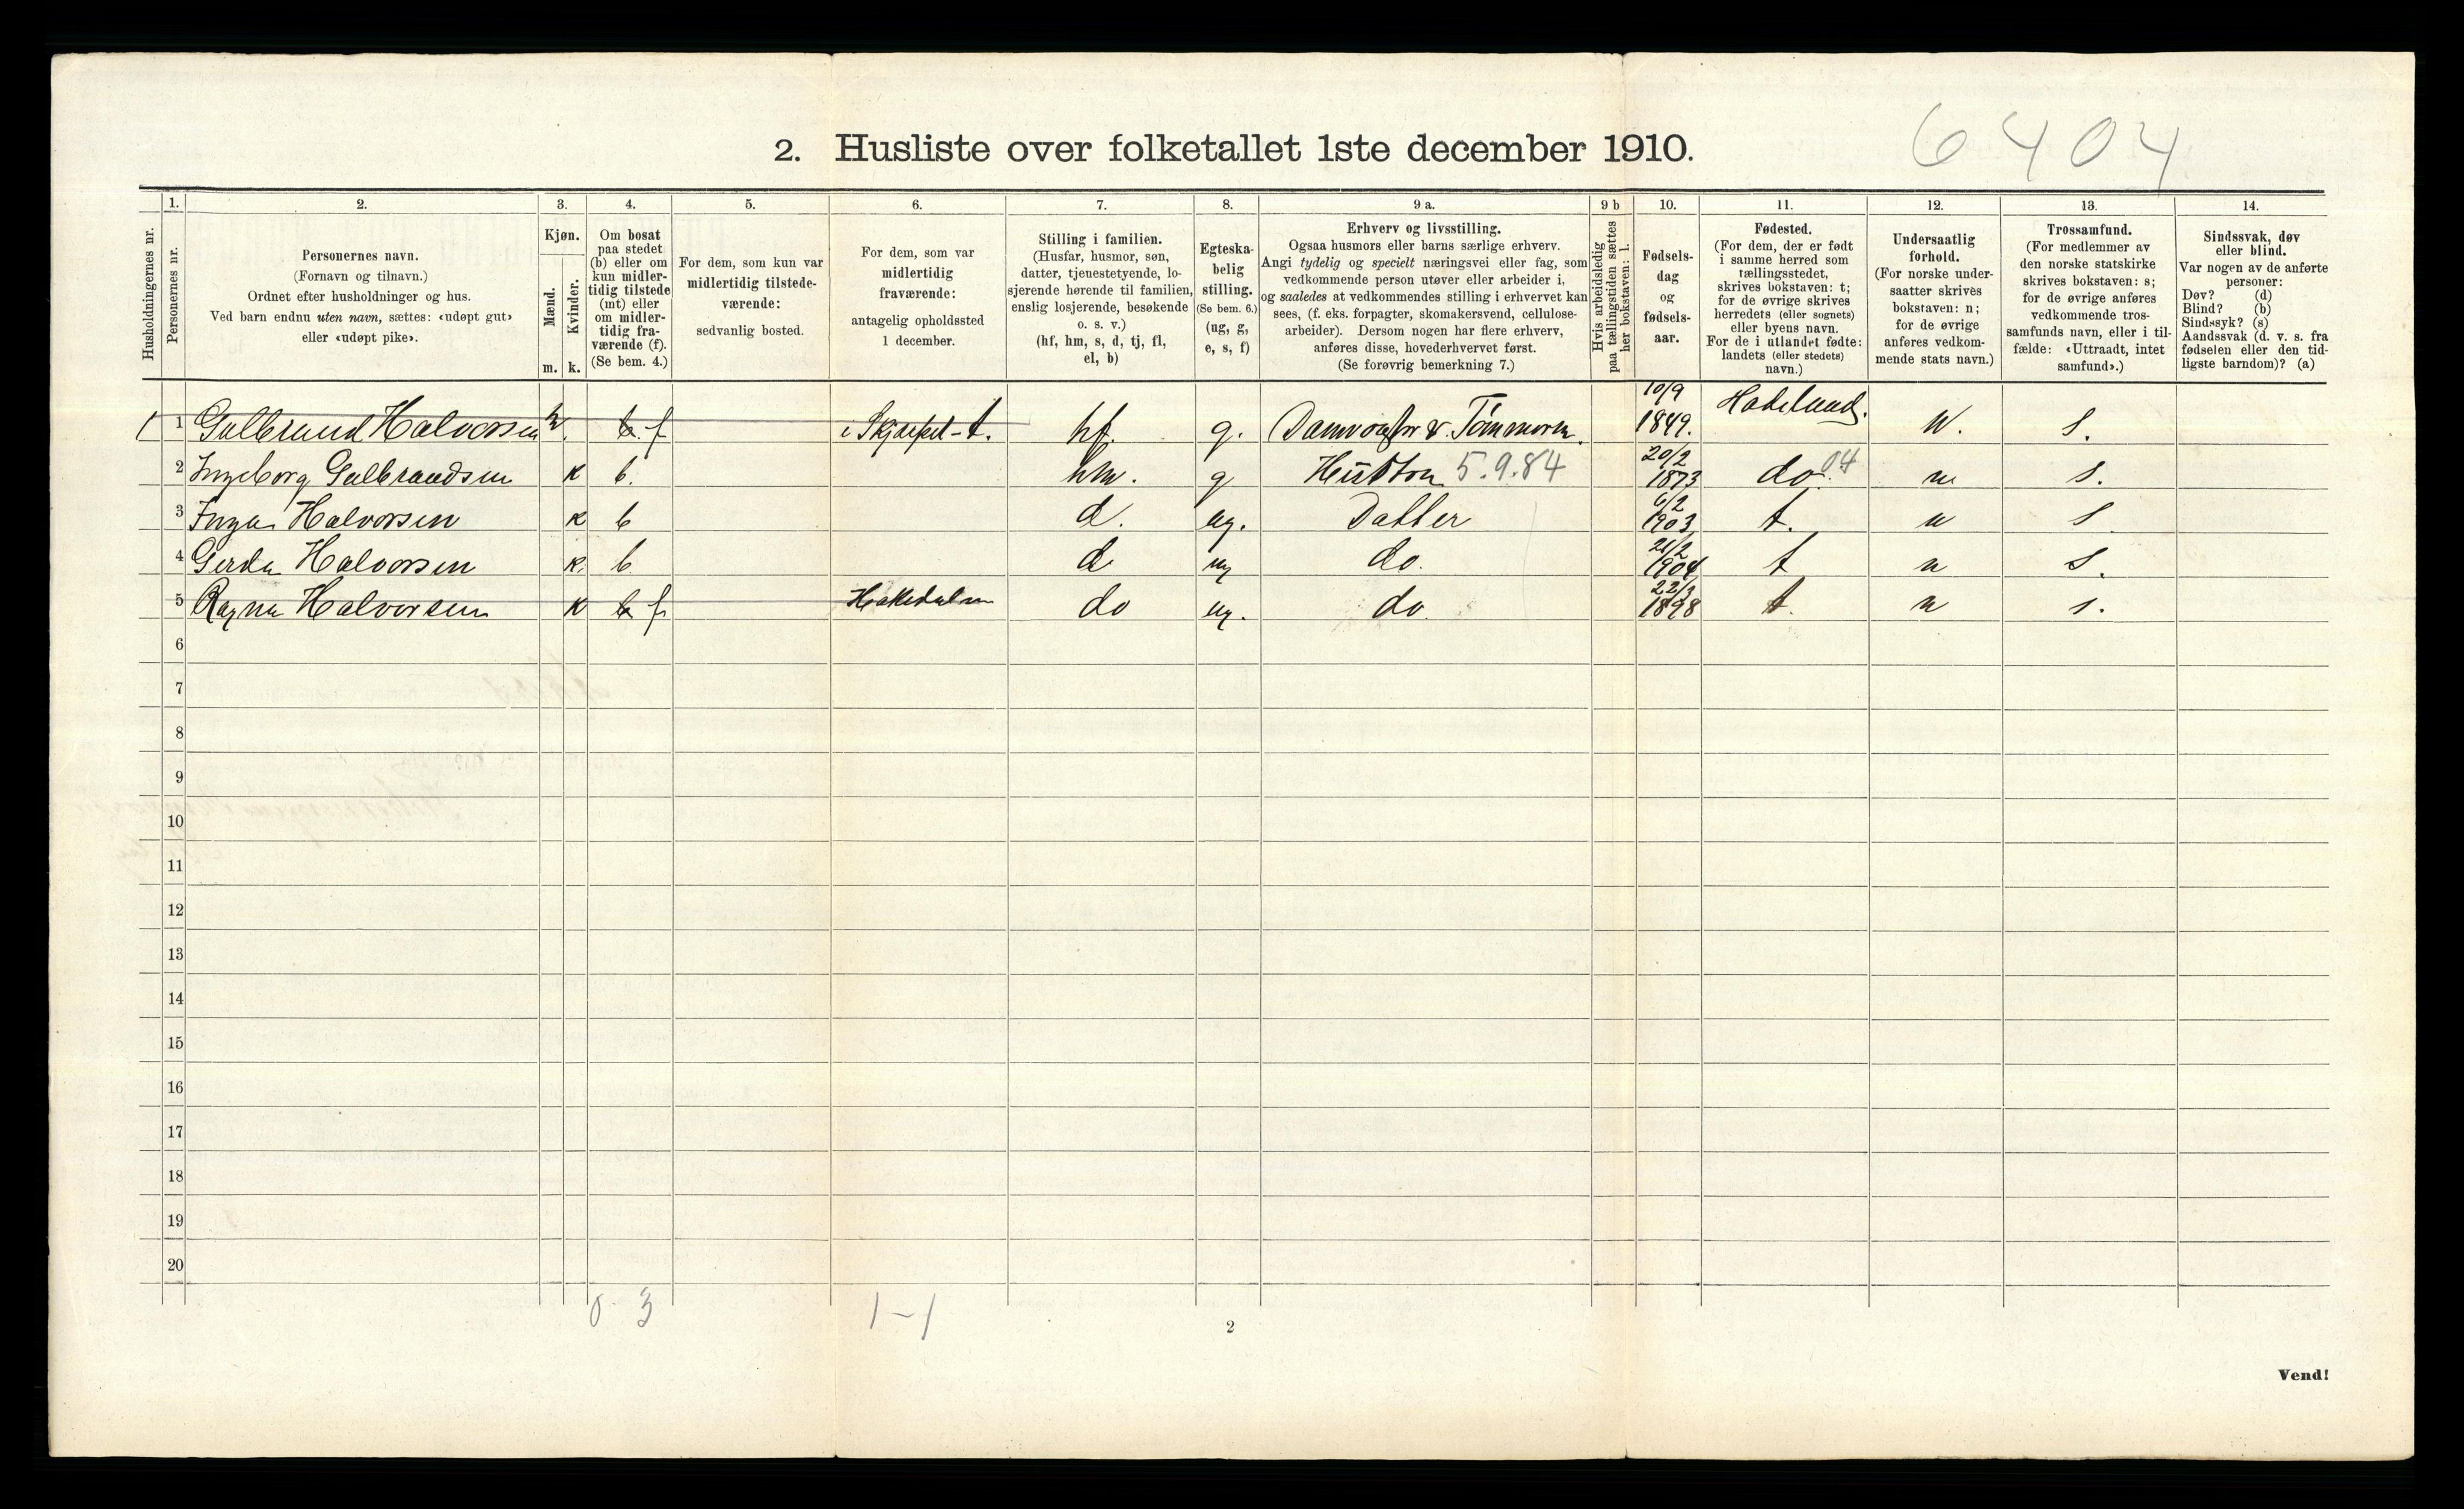 2. Husliste over folketallet 1ste december 1910.
6404
Husholdningernes nr.
1.
Personernes nr.
2.
Personernes navn.
(Fornavn og tilnavn.)
Ordnet efter husholdninger og hus.
Ved barn endnu uten navn, sættes: «udøpt gut»
eller «udøpt pike».
3.
Kjøn.
Mænd.
Kvinder.
m. k.
4.
Om bosat
paa stedet
(b) eller om
kun midler-
tidig tilstede
(mt) eller
om midler-
tidig fra-
værende (f).
(Se bem. 4.)
5.
For dem, som kun var
midlertidig tilstede-
værende:
sedvanlig bosted.
6.
For dem, som var
midlertidig
fraværende:
antagelig opholdssted
1 december.
7.
Stilling i familien.
(Husfar, husmor, søn,
datter, tjenestetyende, lo-
sjerende hørende til familien,
enslig losjerende, besøkende
o. s. v.)
(hf, hm, s, d, tj, fl,
el, b)
8.
Egteska-
belig
stilling.
(Se bem. 6.)
(ug, g,
e, s, f)
9 a.
Erhverv og livsstilling.
Ogsaa husmors eller barns særlige erhverv.
Angi tydelig og specielt næringsvei eller fag, som
vedkommende person utøver eller arbeider i,
og saaledes at vedkommendes stilling i erhvervet kan
sees, (f. eks. forpagter, skomakersvend, cellulose-
arbeider). Dersom nogen har flere erhverv,
anføres disse, hovederhvervet først.
(Se forøvrig bemerkning 7.)
9 b
Hvis arbeidsledig
paa tællingstiden sættes
her bokstaven: l.
10.
Fødsels-
dag
og
fødsels-
aar.
11.
Fødested.
(For dem, der er født
i samme herred som
tællingsstedet,
skrives bokstaven: t;
for de øvrige skrives
herredets (eller sognets)
eller byens navn.
For de i utlandet fødte:
landets (eller stedets)
navn.)
12.
Undersaatlig
forhold.
(For norske under-
saatter skrives
bokstaven: n;
for de øvrige
anføres vedkom-
mende stats navn.)
13.
Trossamfund.
(For medlemmer av
den norske statskirke
skrives bokstaven: s;
for de øvrige anføres
vedkommende tros-
samfunds navn, eller i til-
fælde: «Uttraadt, intet
samfund».)
14.
Sindssvak, døv
eller blind.
Var nogen av de anførte
personer:
Døv? (d)
Blind? (b)
Sindssyk? (s)
Aandssvak (d. v. s. fra
fødselen eller den tid-
ligste barndom)? (a)
1 Gulbrand Halvorsen b. f hf. g. 10/9 1849. Hadeland. n. s.
2 Ingeborg Gulbrandsen k b. hm. g 5.9.84 20/2 1873 do. 04 n s.
3 Inga Halvorsen k b d. ug. Datter 6/2 1903 t. n s
4 Gerda Halvorsen k. b d ug do. 21/2 1904 t n s.
5 Ragna Halvorsen k b f Hakedalen do ug. do. 22/3 1898 t. n s.
6
7
8
9
10
11
12
13
14
15
16
17
18
19
20
0 3
1-1
2
Vend!